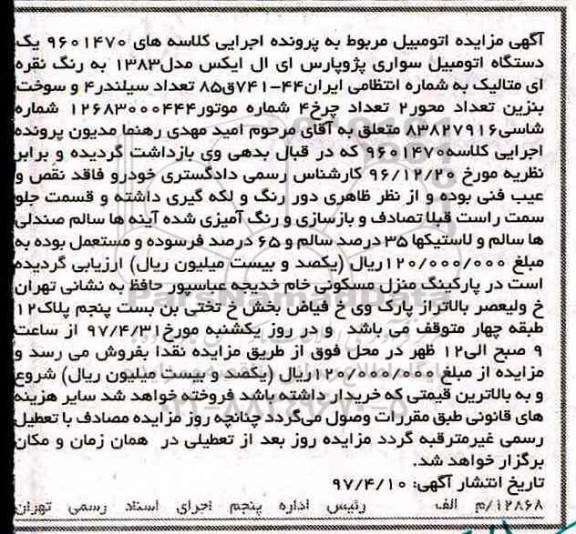 آگهی مزایده اتومبیل مربوط به پرونده اجرایی کلاسه های ۹۶۰۱۴۷۰ یک
دستگاه اتومبیل سواری پژوپارس ای ال ایکس مدل۱۳۸۳ به رنگ نقره
ای متالیک به شماره انتظامی ایران۴۴-۷۴۱ق۸۵ تعداد سیلندر۴ و سوخت
بنزین تعداد محور۲ تعداد چرخ۴ شماره موتور۱۲۶۸۳۰۰۰۴۴۴ شماره
شاسی۸۳۸۲۷۹۱۶ متعلق به آقای مرحوم امید مهدی رهنما مدیون پرونده
اجرایی کلاسه۹۶۰۱۴۷۰ که در قبال بدهی وی بازداشت گردیده و برابر
نظریه مورخ ۹۶/۱۲/۲۰ کارشناس رسمی دادگستری خودرو فاقد نقص و
عیب فنی بوده و از نظر ظاهری دور رنگ و لکه گیری داشته و قسمت جلو
سمت راست قبلا تصادف و بازسازی و رنگ آمیزی شده آینه ها سالم صندلی
ها سالم و لاستیکها ۳۵ درصد سالم و ۶۵ درصد فرسوده و مستعمل بوده به
مبلغ ۱۲۰/۰۰۰/۰۰۰ریال (یکصد و بیست میلیون ریال) ارزیابی گردیده
است در پارکینگ منزل مسکونی خام خدیجه عباسپور حافظ به نشانی تهران
خ ولیعصر بالاتراز پارک وی خ فیاض بخش خ تختی بن بست پنجم پلاک۱۲
طبقه چهار متوقف می باشد و در روز یکشنبه مورخ۹۷/۴/۳۱ از ساعت
۹ صبح الی۱۲ ظهر در محل فوق از طریق مزایده نقدا بفروش می رسد و
مزایده از مبلغ ۱۲۰/۰۰۰/۰۰۰ریال (یکصد و بیست میلیون ریال) شروع
و به بالاترین قیمتی که خریدار داشته باشد فروخته خواهد شد سایر هزینه
های قانونی طبق مقررات وصول می‌گردد چنانچه روز مزایده مصادف با تعطیل
رسمی غیرمترقبه گردد مزایده روز بعد از تعطیلی در همان زمان و مکان
برگزار خواهد شد.
تاریخ انتشار آگهی: ۹۷/۴/۱۰
۱۲۸۶۸/م الف رئیس اداره پنجم اجرای اسناد رسمی تهران